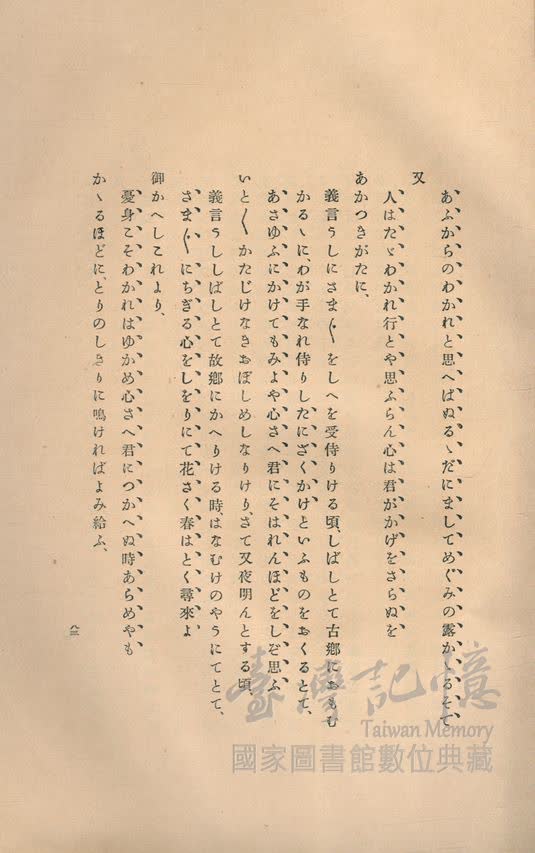 あふからのわかれと思へばぬるゝだにましてめぐみの露かゝるそで
又
人はたゞわかれ行とや思ふらん心は君がかげをさらぬを
あかつきがたに、
義言うしにさま〴〵をしへを受侍りける頃、しばしとて古鄕におもむ
かるゝに、わが手なれ侍りしたにざくかけといふものをおくるとて、
あさゆふにかけてもみよや心さへ君にそはれんほどをしぞ思ふ
いと〳〵かたじけなきおぼしめしなりけり、さて又夜明んとする頃、
義言うししばしとて故鄕にかへりける時、はなむけのやうにてとて、
さま〴〵にちぎる心をしをりにて花さく春はとく尋來よ
御かへしこれより、
憂身こそわかれはゆかめ心さへ君につかへぬ時あらめやも
かゝるほどに、とりのしきりに鳴ければよみ給ふ、
八三
臺灣記憶
Taiwan Memory
國家圖書館數位典藏